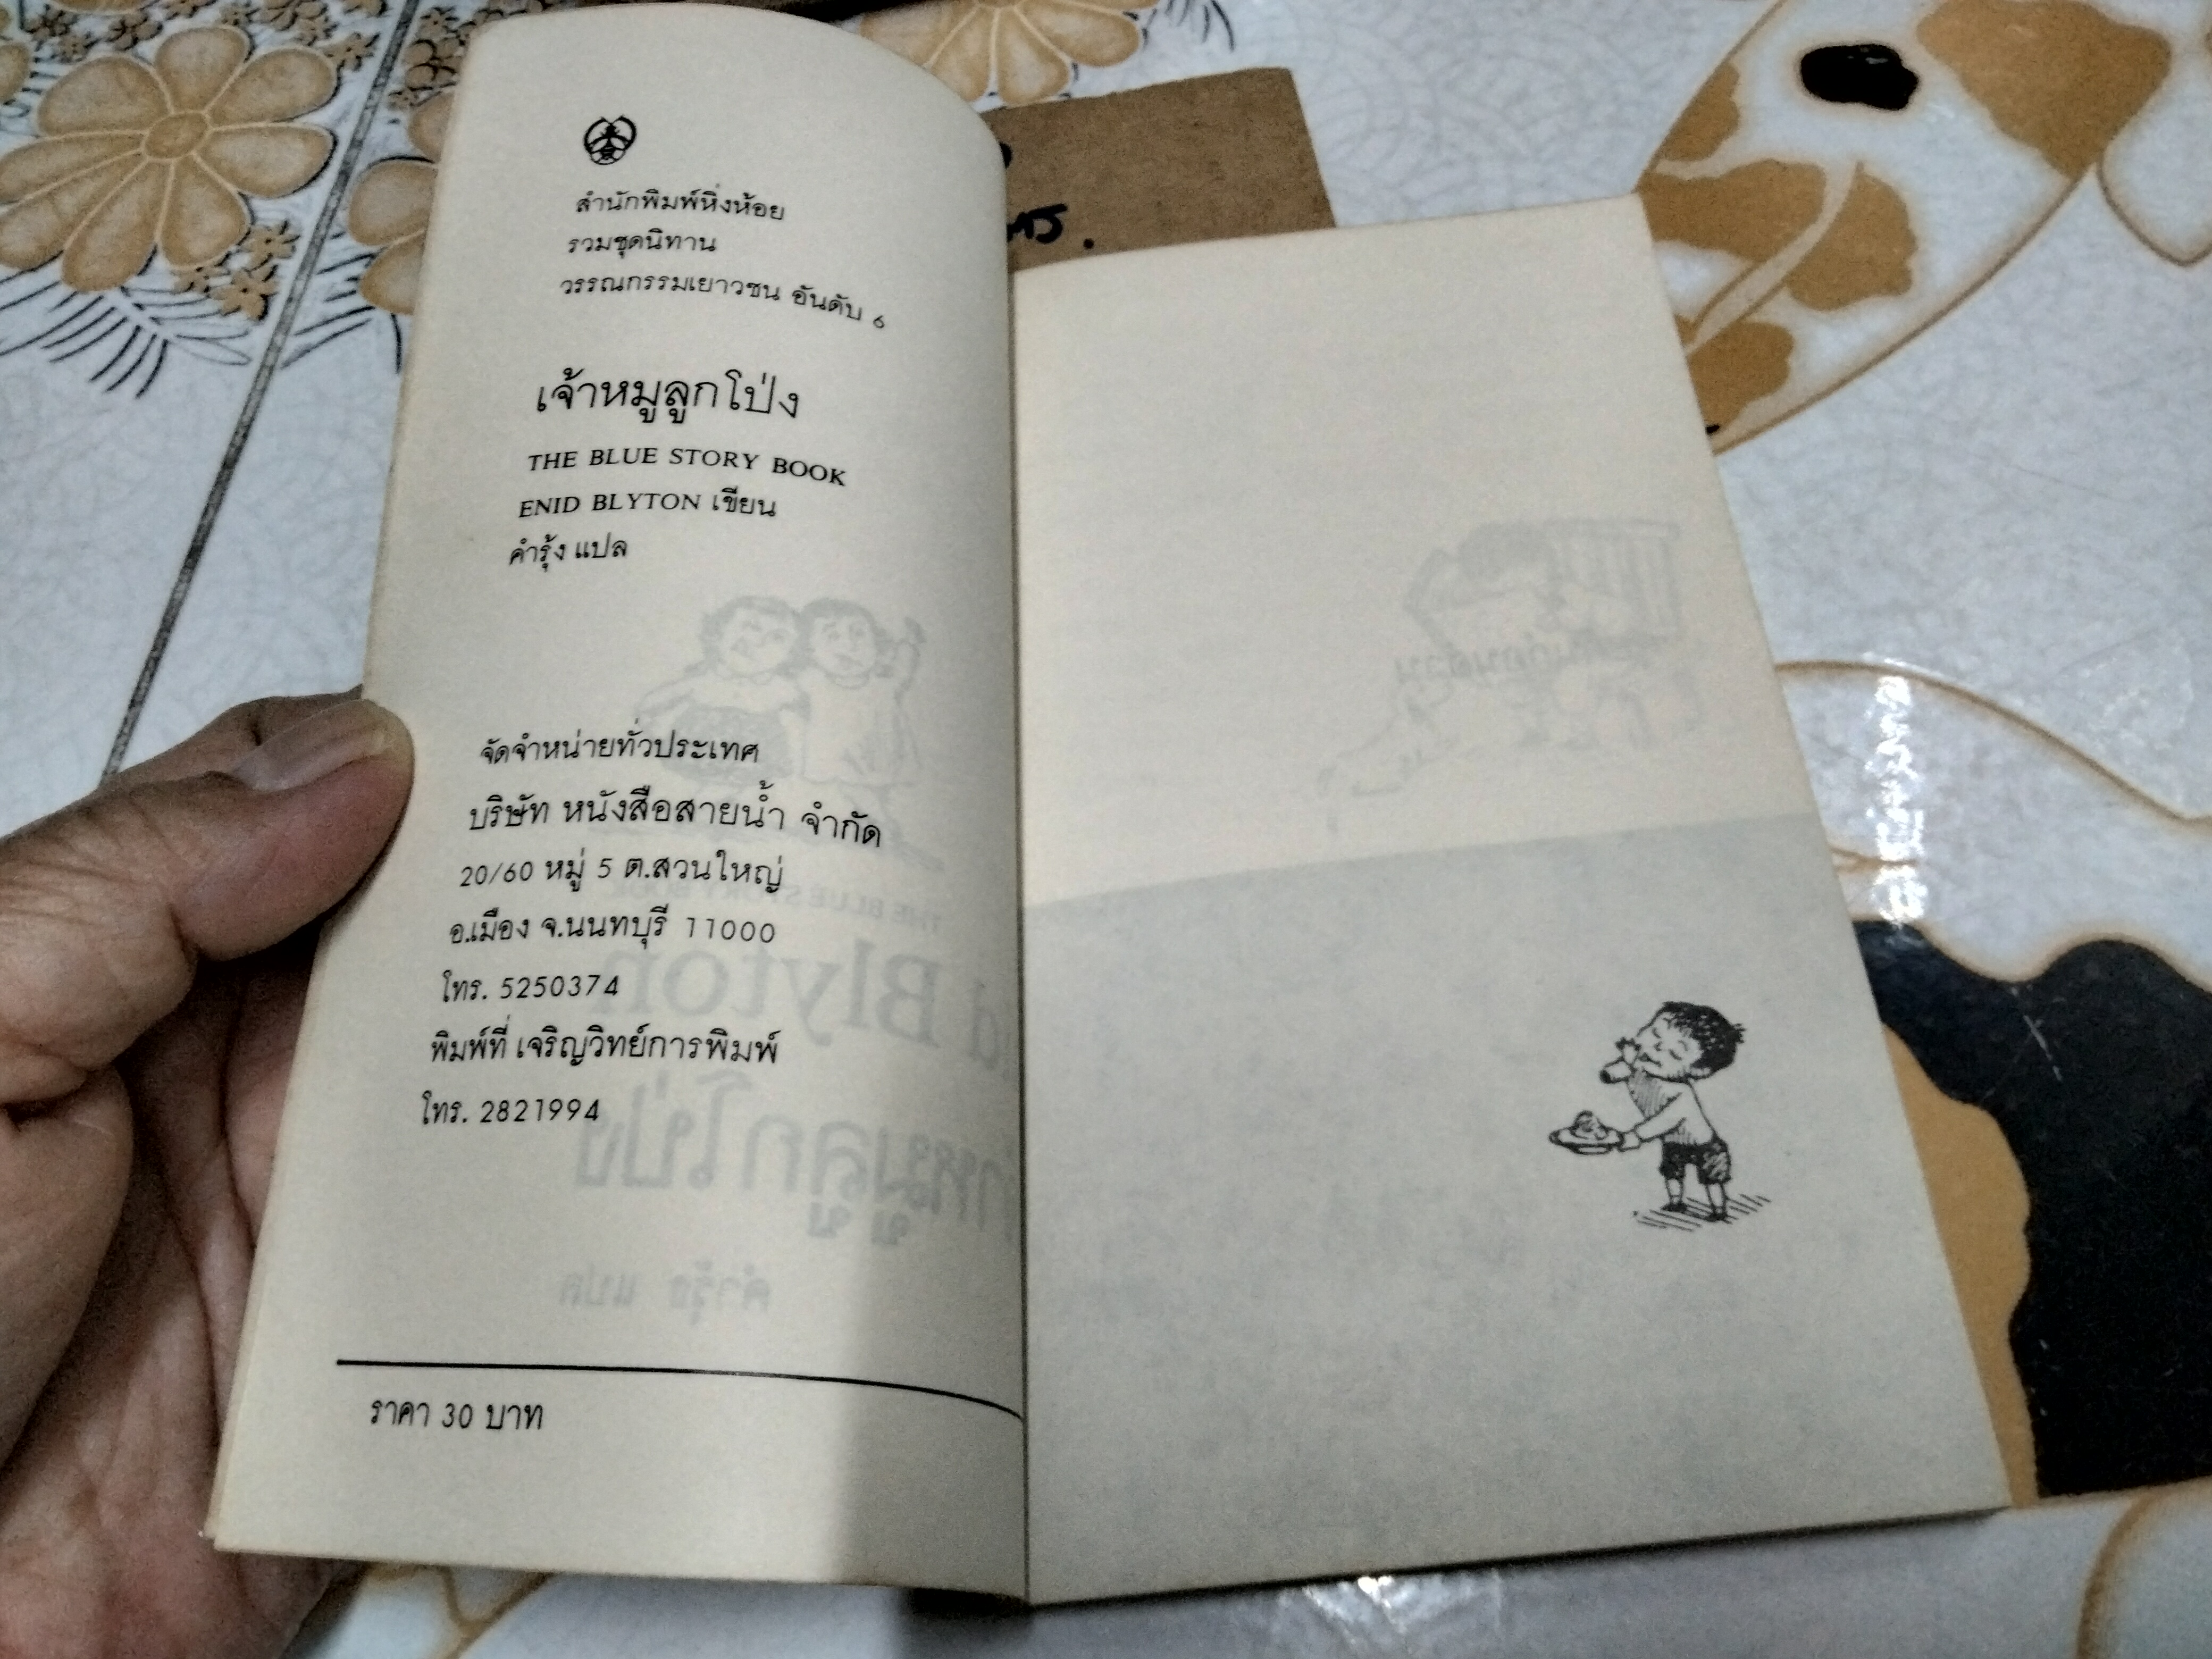 สำนักพิมพ์หิ่งห้อย
รวมชุดนิทาน
วรรณกรรมเยาวชน อันดับ ๖
เจ้าหมูลูกโป่ง
THE BLUE STORY BOOK
ENID BLYTON เขียน
คำรุ้ง แปล
จัดจำหน่ายทั่วประเทศ
บริษัท หนังสือสายน้ำ จำกัด
20/60 หมู่ 5 ต.สวนใหญ่
อ.เมือง จ.นนทบุรี 11000
โทร. 5250374
พิมพ์ที่ เจริญวิทย์การพิมพ์
โทร. 2821994
ราคา 30 บาท